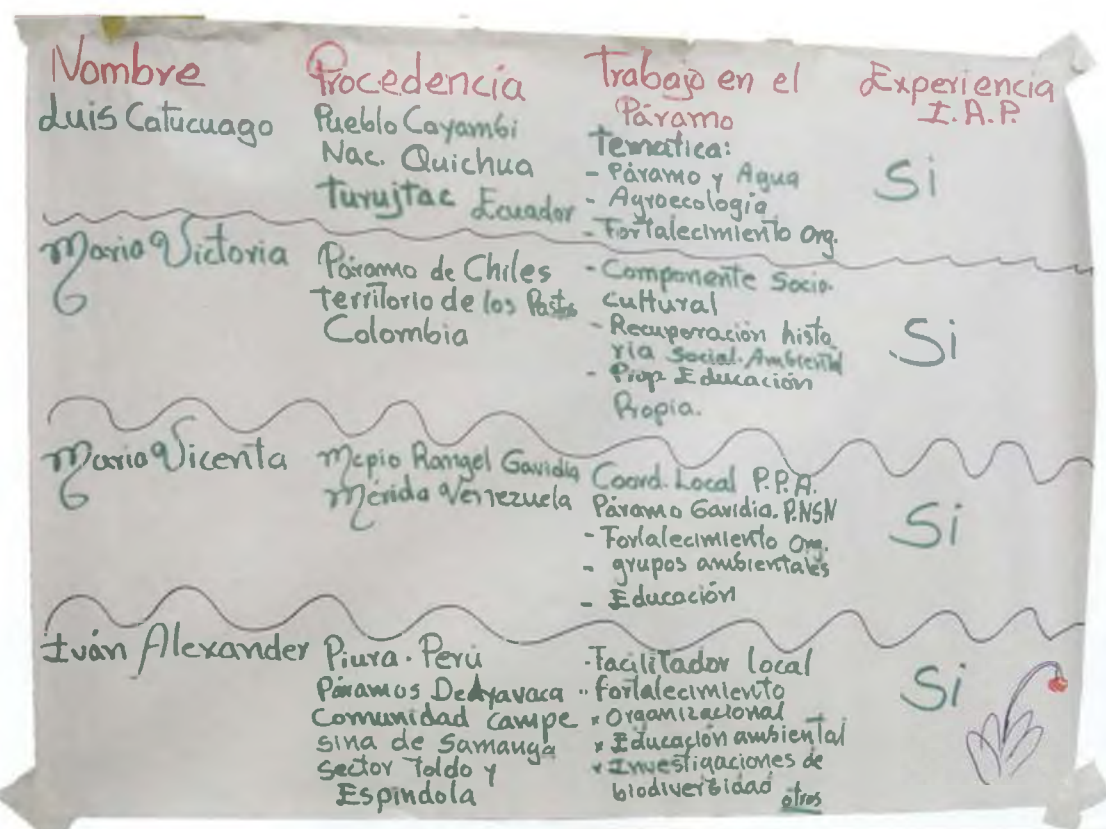 Nombre
Procedencia
Trabajo en el
Páramo
Experiencia
I.A.P.
Luis Catucuago
Pueblo Cayambi
Nac. Quichua
Turujtac Ecuador
Tematica:
- Páramo y Agua
- Agroecología
- Fortalecimiento Org.
Si
Maria Victoria
Páramo de Chiles
Territorio de los Pastos
Colombia
- Componente Socio-
Cultural
- Recuperación histo
ria Social-Ambiental
- Prop Educación
Propia.
Si
Maria Vicenta
Mcpio Rangel Gavidia
Mérida Venezuela
Coord. Local P.P.A.
Páramo Gavidia. P.NSN
- Fortalecimiento Org.
- grupos ambientales
- Educación
Si
Iván Alexander
Piura - Perú
Páramos De Ayavaca
Comunidad campe
sina de Samanga
Sector Toldo y
Espindola
- Facilitador local
- Fortalecimiento
* Organizacional
* Educación ambiental
* Investigaciones de
biodiversidad otros
Si